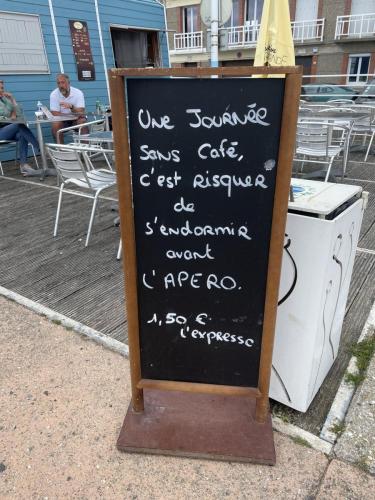 Une Journée
Sans Café,
c'est Risquer
de
s'endormir
avant
L'APERO.
1,50 €
L'expresso